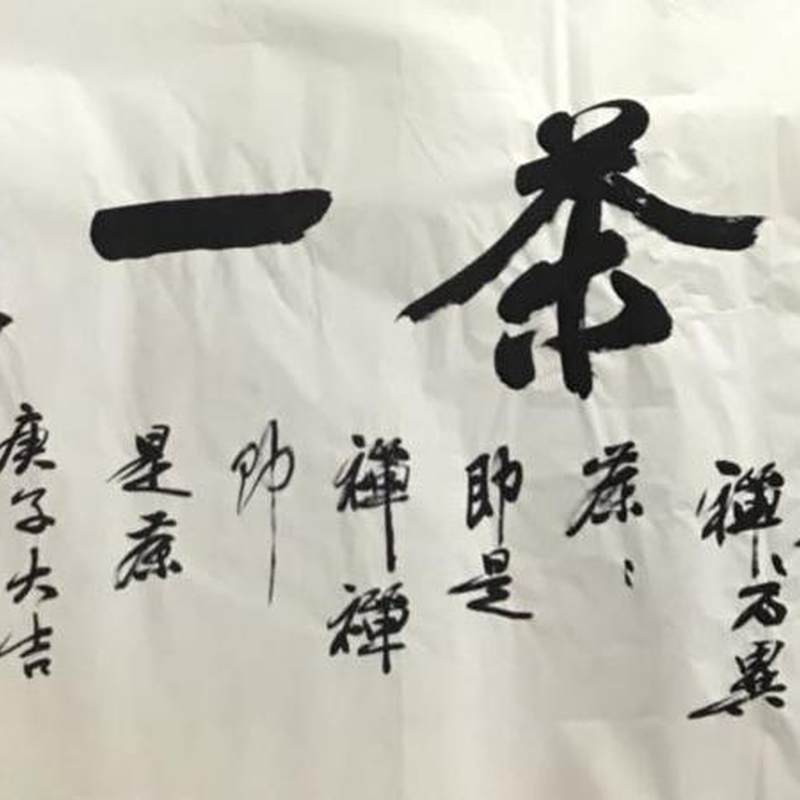 茶一
禪〻不異
茶〻
即是
禪禪
即
是茶
庚子大吉